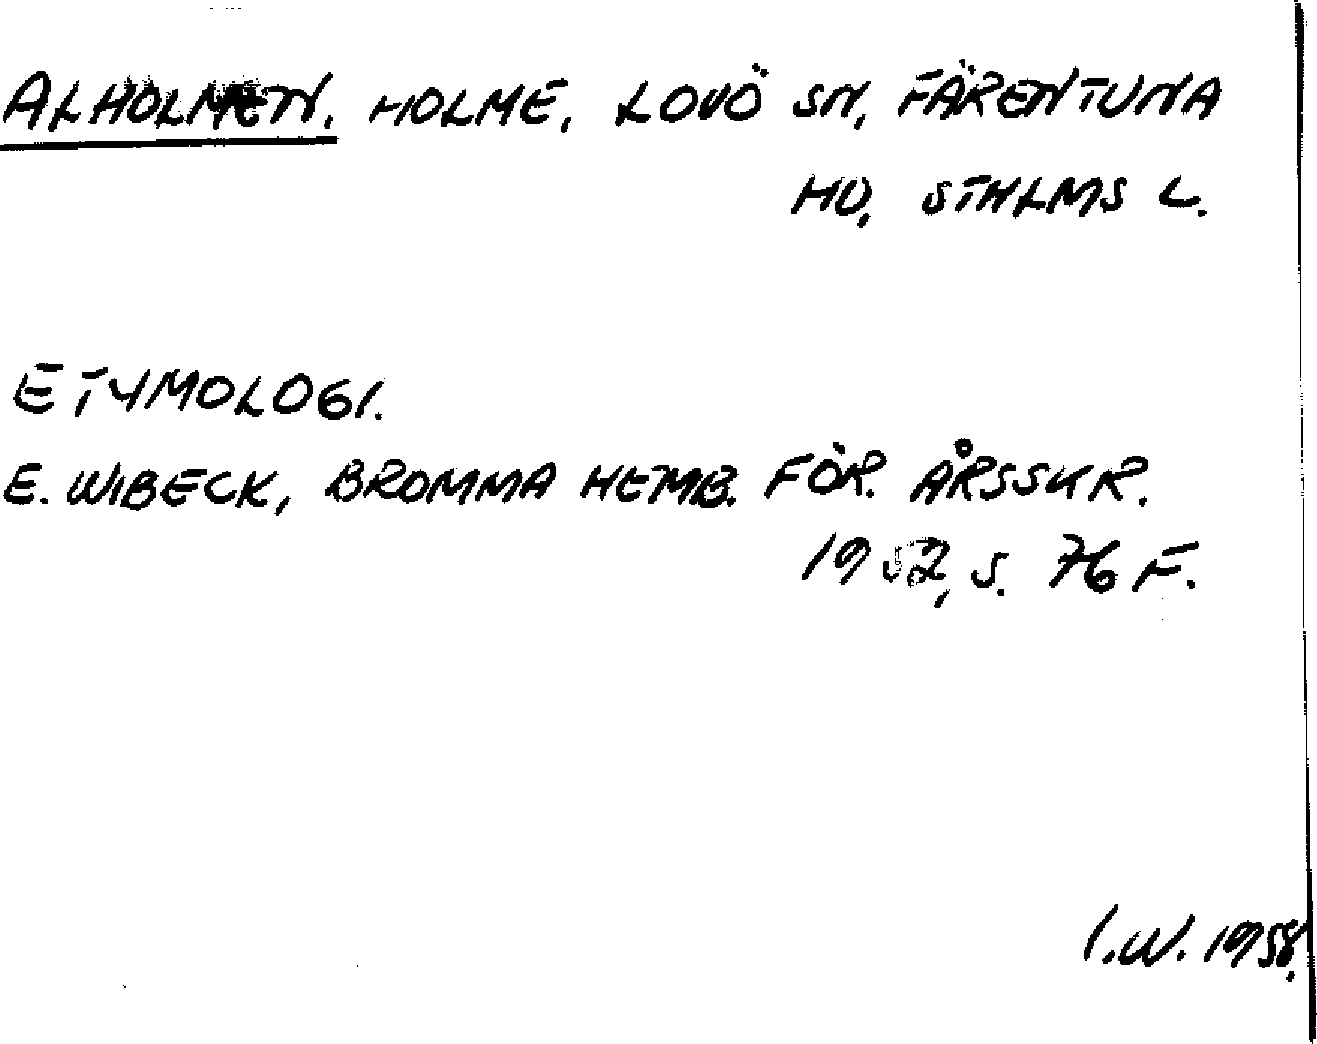 ALHOLMEN. HOLME, LOVÖ SN, FÄRENTUNA
HD, STHLMS L.
ETYMOLOGI.
E. WIBECK, BROMMA HEMB. FÖR. ÅRSSKR.
1952, S. 76 F.
I.W. 1958.